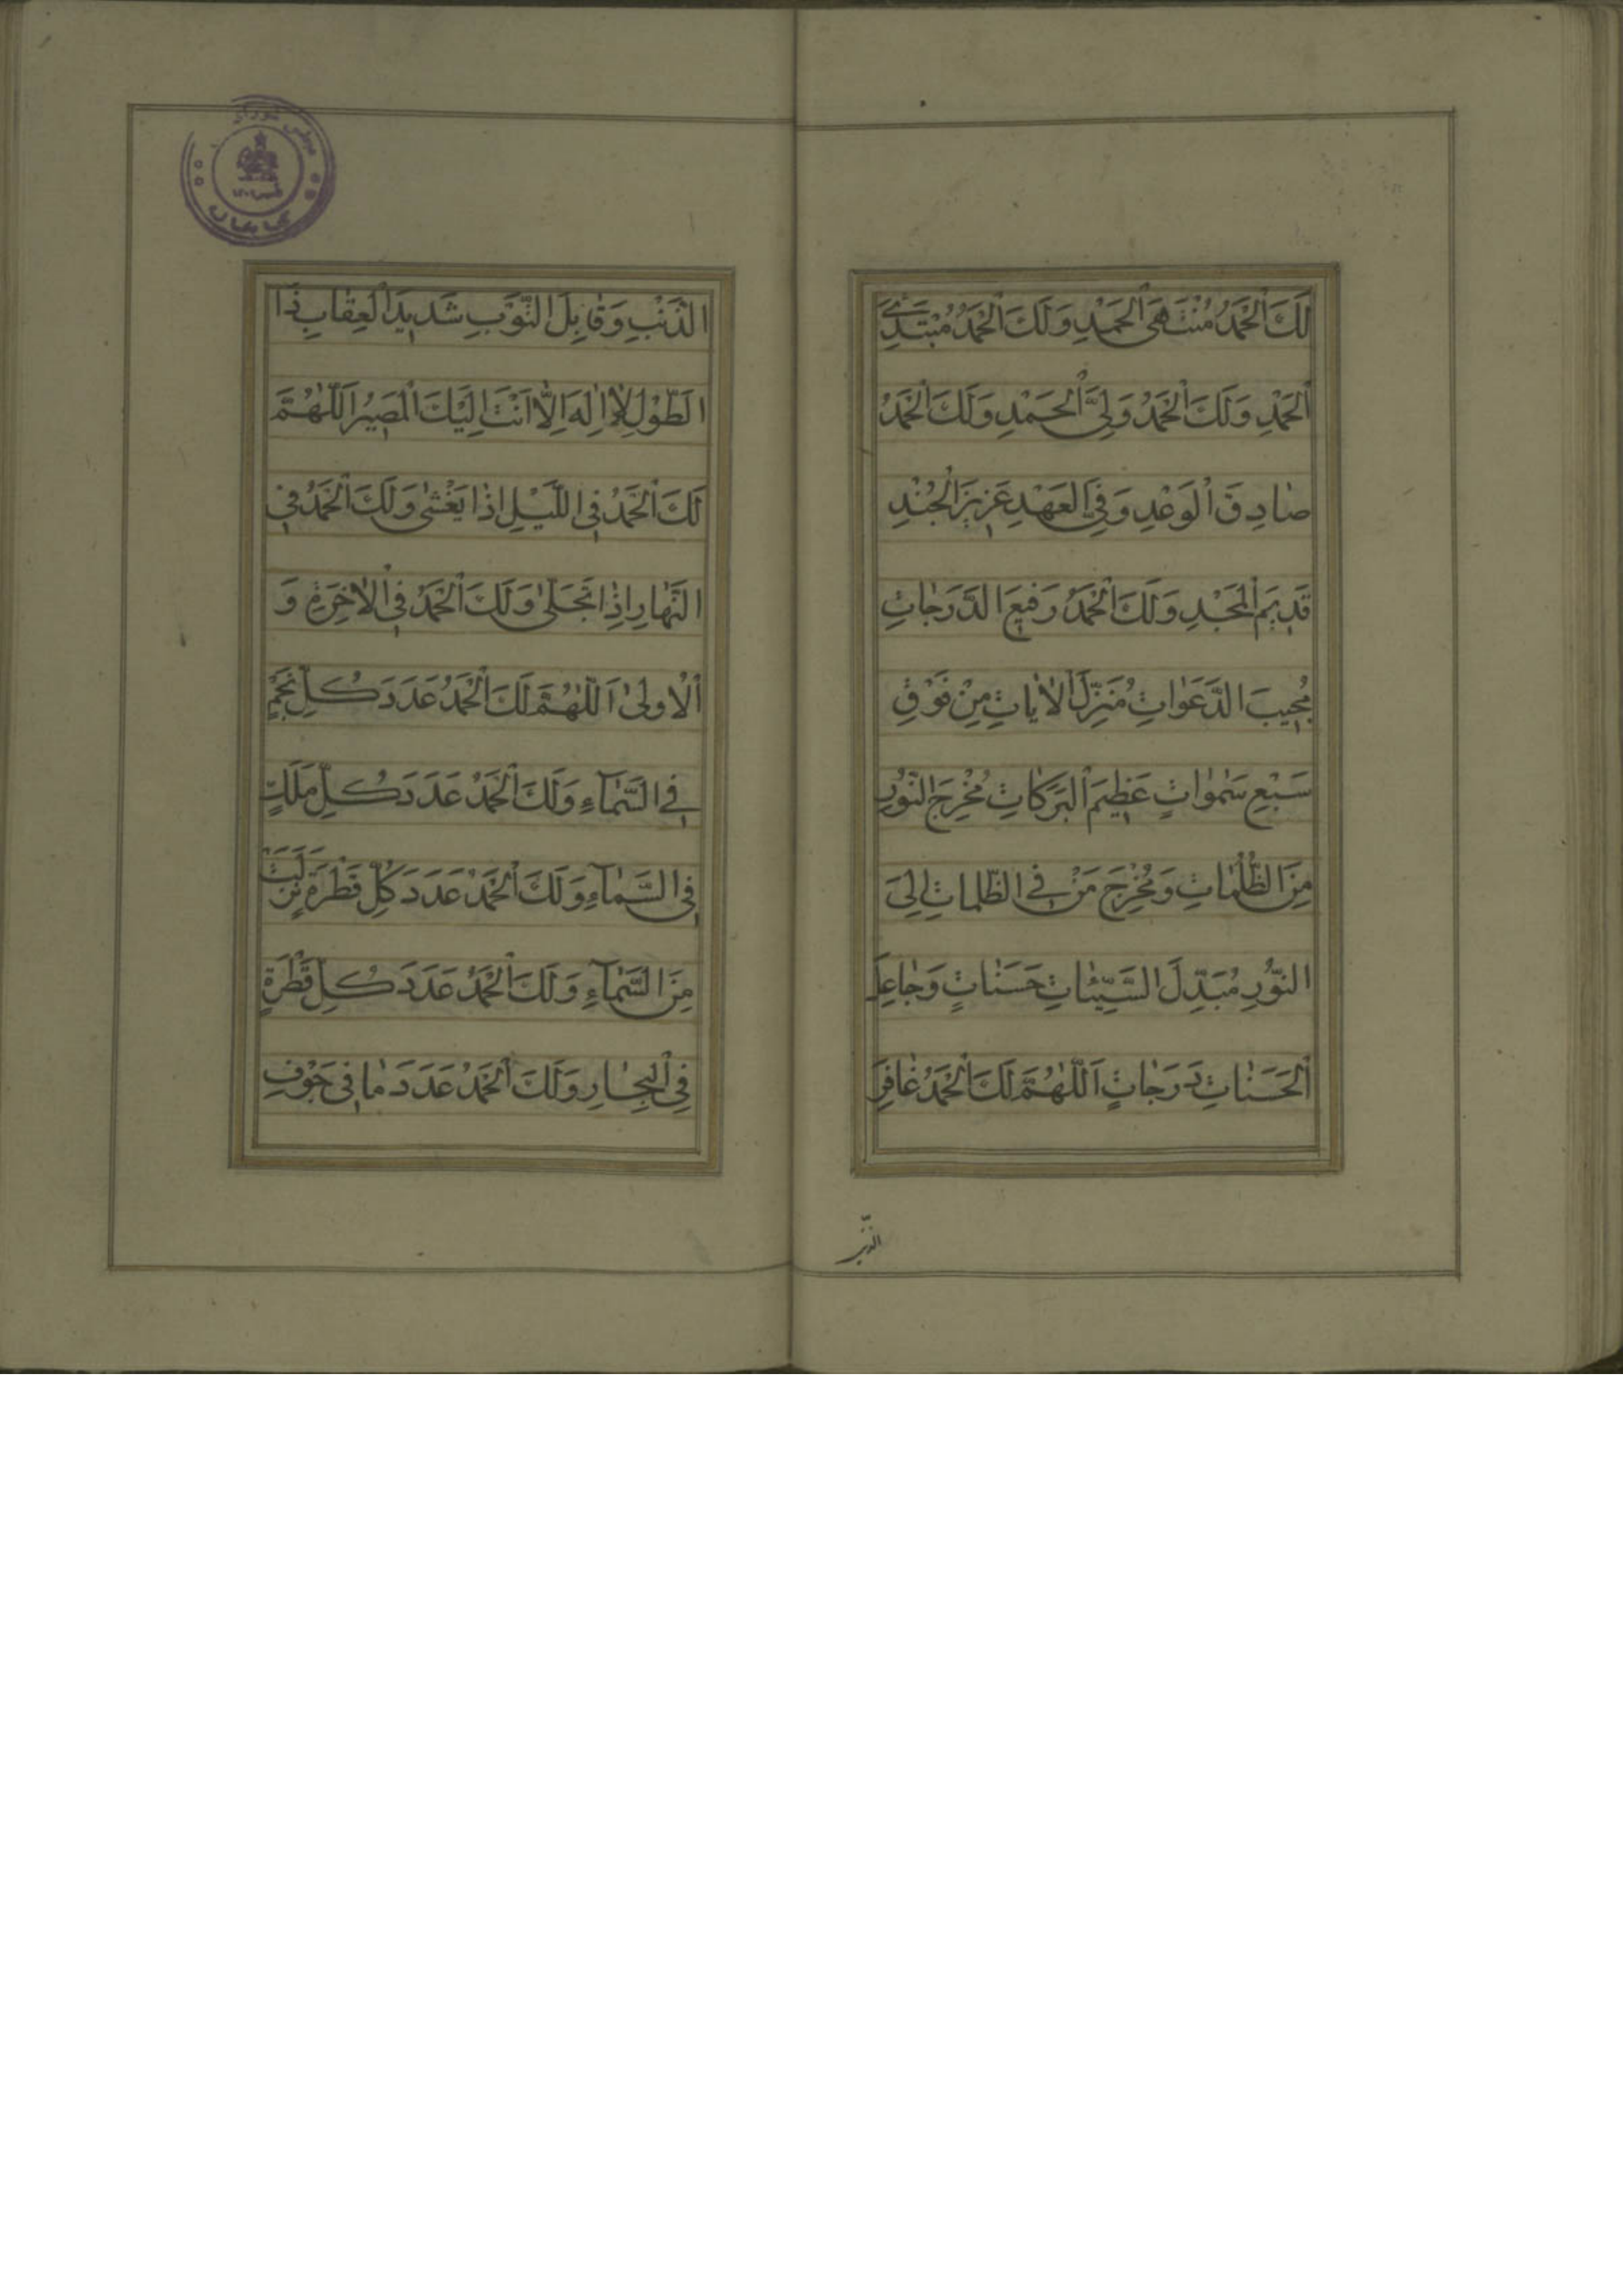 لَكَ الْحَمْدُ مُنْتَهَى الْحَمْدِ وَلَكَ الْحَمْدُ مُبْتَدِئَ
الْحَمْدِ وَلَكَ الْحَمْدُ وَلِيَّ الْحَمْدِ وَلَكَ الْحَمْدُ
صٰادِقَ الْوَعْدِ وَفِيَّ الْعَهْدِ عَزِيزَ الْجُنْدِ
قَدِيمَ الْمَجْدِ وَلَكَ الْحَمْدُ رَفِيعَ الدَّرَجٰاتِ
مُجِيبَ الدَّعَوٰاتِ مُنَزِّلَ الْاٰيٰاتِ مِنْ فَوْقِ
سَبْعِ سَمٰوٰاتٍ عَظِيمَ الْبَرَكٰاتِ مُخْرِجَ النُّورِ
مِنَ الظُّلُمٰاتِ وَمُخْرِجَ مَنْ فِي الظُّلمٰاتِ اِلَى
النُّورِ مُبَدِّلَ السَّيِّئٰاتِ حَسَنٰاتٍ وَجٰاعِلَ
الْحَسَنٰاتِ دَرَجٰاتٍ اَللّٰهُمَّ لَكَ الْحَمْدُ غٰافِرَ
الذَّنْبِ وَقٰابِلَ التَّوْبِ شَدِيدَ الْعِقٰابِ ذَا
الطَّوْلِ لٰا اِلٰهَ اِلَّا اَنْتَ اِلَيْكَ الْمَصِيرُ اَللّٰهُمَّ
لَكَ الْحَمْدُ فِي اللَّيْلِ اِذٰا يَغْشٰى وَلَكَ الْحَمْدُ فِي
النَّهٰارِ اِذٰا تَجَلّٰى وَلَكَ الْحَمْدُ فِي الْاٰخِرَةِ وَ
الْاُولىٰ اَللّٰهُمَّ لَكَ الْحَمْدُ عَدَدَ كُلِّ نَجْمٍ
فِي السَّمٰآءِ وَلَكَ الْحَمْدُ عَدَدَ كُلِّ مَلَكٍ
فِي السَّمٰآءِ وَلَكَ الْحَمْدُ عَدَدَ كُلِّ قَطْرَةٍ نَزَلَتْ
مِنَ السَّمٰآءِ وَلَكَ الْحَمْدُ عَدَدَ كُلِّ قَطْرَةٍ
فِي الْبِحٰارِ وَلَكَ الْحَمْدُ عَدَدَ مٰا فِي جَوْفِ